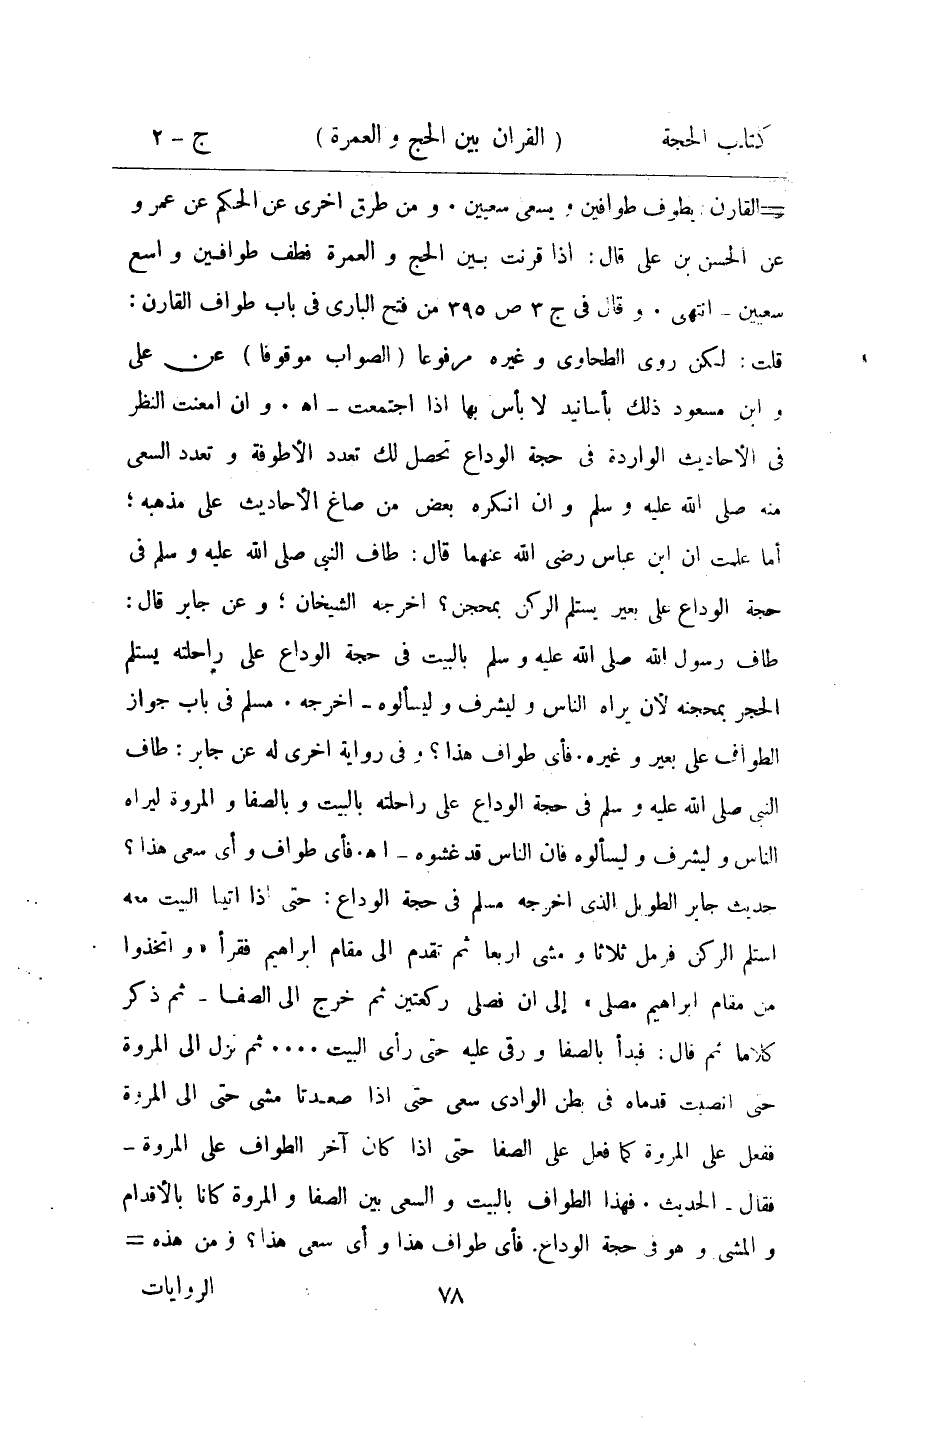 كتاب الحجة ( القران بين الحج و العمرة ) ج - ٢
= القارن يطوف طوافين و يسعى سعيين . و من طرق اخرى عن الحكم عن عمر و
عن الحسن بن على قال : اذا قرنت بين الحج و العمرة فطف طوافين و اسع
سعيين - انتهى . و قال فى ج ٣ ص ٣٩٥ من فتح البارى فى باب طواف القارن :
قلت : لكن روى الطحاوى و غيره مرفوعا ( الصواب موقوفا ) عن على
و ابن مسعود ذلك بأسانيد لا بأس بها اذا اجتمعت - اه . و ان امعنت النظر
فى الأحاديث الواردة فى حجة الوداع تحصل لك تعدد الأطوفة و تعدد السعى
منه صلى الله عليه و سلم و ان انكره بعض من صاغ الأحاديث على مذهبه ؛
أما علمت ان ابن عباس رضى الله عنهما قال : طاف النبى صلى الله عليه و سلم فى
حجة الوداع على بعير يستلم الركن بمحجن ؟ اخرجه الشيخان ؛ و عن جابر قال :
طاف رسول الله صلى الله عليه و سلم بالبيت فى حجة الوداع على راحلته يستلم
الحجر بمحجنه لأن يراه الناس و ليشرف و ليسألوه - اخرجه . مسلم فى باب جواز
الطواف على بعير و غيره . فأى طواف هذا ؟ و فى رواية اخرى له عن جابر : طاف
النبى صلى الله عليه و سلم فى حجة الوداع على راحلته بالبيت و بالصفا و المروة ليراه
الناس و ليشرف و ليسألوه فان الناس قد غشوه - اه . فأى طواف و أى سعى هذا ؟
حديث جابر الطويل الذى اخرجه مسلم فى حجة الوداع : حتى اذا اتينا البيت معه
استلم الركن فرمل ثلاثا و مشى اربعا ثم تقدم الى مقام ابراهيم فقرأ « و اتخذوا
من مقام ابراهيم مصلى » إلى ان فصلى ركعتين ثم خرج الى الصفا - ثم ذكر
كلاما ثم قال : فبدأ بالصفا و رقى عليه حتى رأى البيت .... ثم نزل الى المروة
حتى انصبت قدماه فى بطن الوادى سعى حتى اذا صعدتا مشى حتى الى المروة
ففعل على المروة كما فعل على الصفا حتى اذا كان آخر الطواف على المروة -
فقال - الحديث . فهذا الطواف بالبيت و السعى بين الصفا و المروة كانا بالأقدام
و المشى و هو فى حجة الوداع . فأى طواف هذا و أى سعى هذا ؟ و من هذه =
٧٨ الروايات